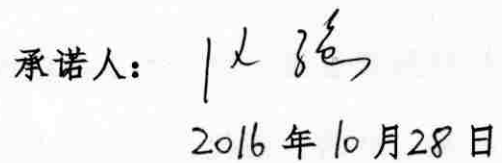 承诺人：
2016年10月28日